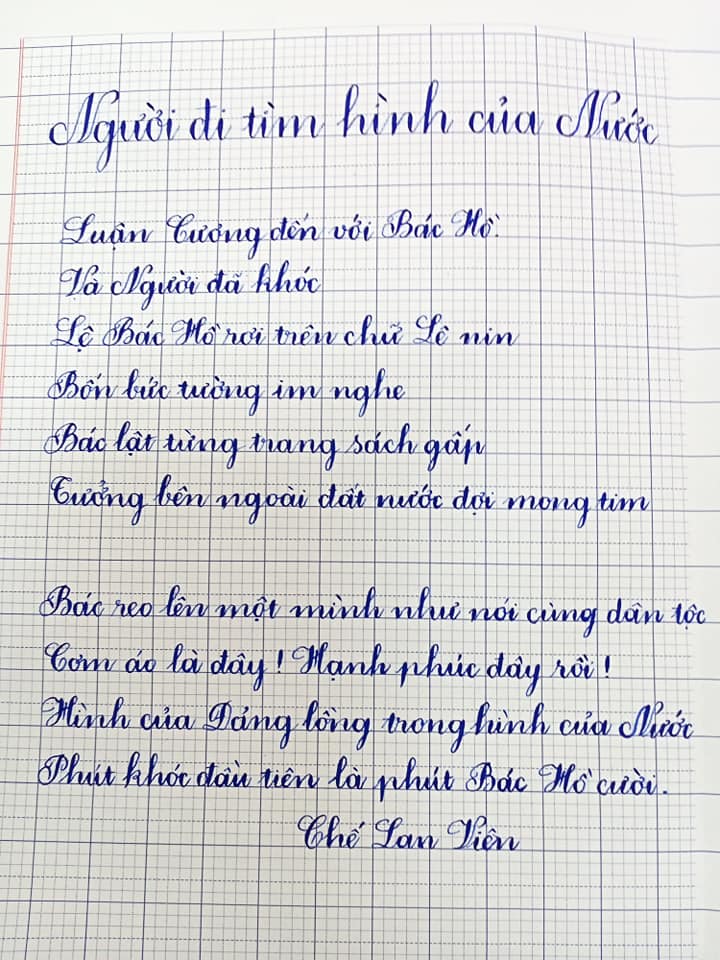 Người đi tìm hình của Nước
Luận Cương đến với Bác Hồ.
Và Người đã khóc
Lệ Bác Hồ rơi trên chữ Lê nin
Bốn bức tường im nghe
Bác lật từng trang sách gấp
Tưởng bên ngoài đất nước đợi mong tim
Bác reo lên một mình như nói cùng dân tộc
Cơm áo là đây! Hạnh phúc đây rồi!
Hình của Đảng lồng trong hình của Nước
Phút khóc đầu tiên là phút Bác Hồ cười.
Chế Lan Viên